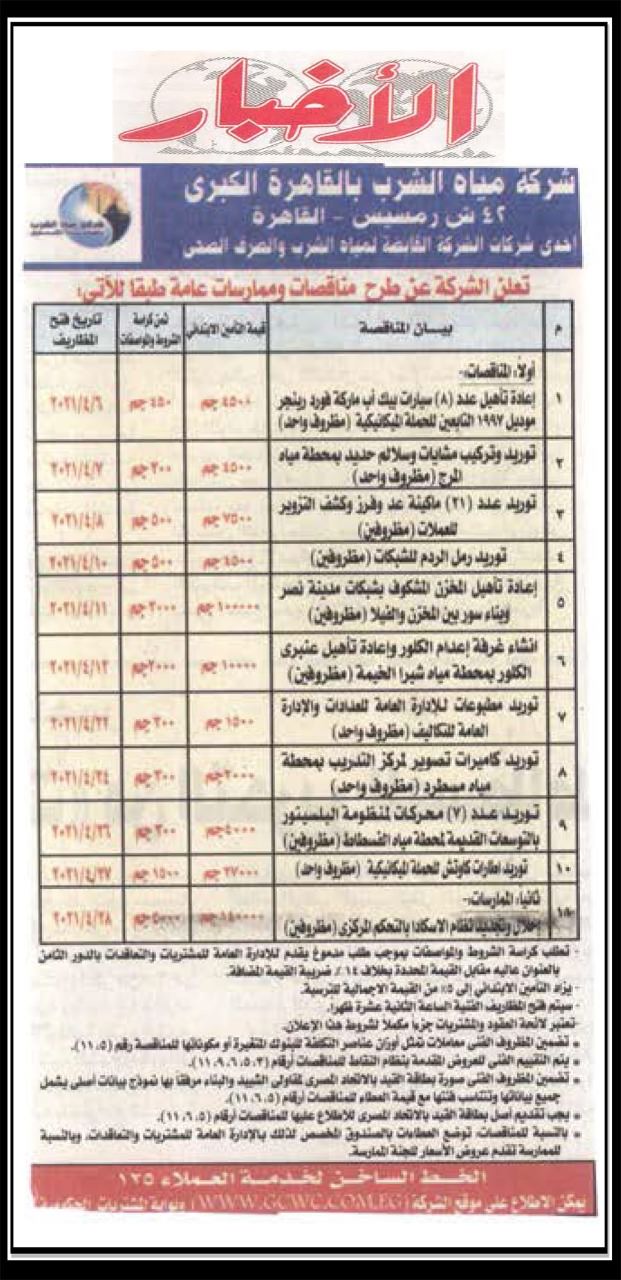 الأخبار
شركة مياه الشرب بالقاهرة الكبرى
٤٢ ش رمسيس - القاهرة
احدى شركات الشركة القابضة لمياه الشرب والصرف الصحى
تعلن الشركة عن طرح مناقصات وممارسات عامة طبقا للأتى:
م بيـــان المناقصة قيمة التأمين الابتدائى ثمن كراسة الشروط والمواصفات تاريخ فتح المظاريف
أولاً: المناقصات:-
١ إعادة تأهيل عدد (٨) سيارات بيك أب ماركة فورد رينجر ٤٥٠٨ جم ٤٥٠ جم ٢٠٢١/٤/٦
موديل ١٩٩٧ التابعين للحملة الميكانيكية (مظروف واحد)
٢ توريد وتركيب مشايات وسلالم حديد بمحطة مياه ٤٥٠٠ جم ٢٠٠ جم ٢٠٢١/٤/٧
المرج (مظروف واحد)
٣ توريد عدد (٢١) ماكينة عد وفرز وكشف التزوير ٧٥٠٠ جم ٥٠٠ جم ٢٠٢١/٤/٨
للعملات (مظروفين)
٤ توريد رمل الردم للشبكات (مظروفين) ٤٥٠٠ جم ٥٠٠ جم ٢٠٢١/٤/١٠
٥ إعادة تأهيل المخزن المشكوف بشبكات مدينة نصر ١٠٠٠٠٠ جم ٢٠٠٠ جم ٢٠٢١/٤/١١
وبناء سور بين المخزن والفيلا (مظروفين)
٦ انشاء غرفة إعدام الكلور وإعادة تأهيل عنبرى ١٠٠٠٠ جم ٢٠٠٠ جم ٢٠٢١/٤/١٢
الكلور بمحطة مياه شبرا الخيمة (مظروفين)
٧ توريد مطبوعات للإدارة العامة للعدادات والإدارة ١٥٠٠ جم ٢٠٠ جم ٢٠٢١/٤/٢٢
العامة للتكاليف (مظروف واحد)
٨ توريد كاميرات تصوير لمركز التدريب بمحطة ٢٠٠٠ جم ٢٠٠ جم ٢٠٢١/٤/٢٤
مياه مسطرد (مظروف واحد)
٩ توريد عدد (٧) محركات لمنظومة البلسيتور ٤٠٠٠ جم ٢٠٠ جم ٢٠٢١/٤/٢٦
بالتوسعات القديمة لمحطة مياه الفسطاط (مظروفين)
١٠ توريد اطارات كاوتش للحملة الميكانيكية (مظروف واحد) ٢٧٠٠٠ جم ١٥٠٠ جم ٢٠٢١/٤/٢٧
ثانيا: الممارسات:-
إحلال وتجديد لنظام الاسكادا بالتحكم المركزى (مظروفين) ٥٠٠٠ جم ٢٠٢١/٤/٢٨
- تطلب كراسة الشروط والمواصفات بموجب طلب مدموغ يقدم للإدارة العامة للمشتريات والتعاقدات بالدور الثامن
بالعنوان عاليه مقابل القيمة المحددة بخلاف ١٤٪ ضريبة القيمة المضافة.
- يزاد التأمين الابتدائى إلى ٥٪ من القيمة الاجمالية للترسية.
- سيتم فتح المظاريف الفنية الساعة الثانية عشرة ظهرا.
- تعتبر لائحة العقود والمشتريات جزءا مكملا لشروط هذا الإعلان.
● تضمين المظروف الفنى معاملات تمثل أوزان عناصر التكلفة للبنوك المتغيرة أو مكوناتها للمناقصة رقم (١١،٥).
● يتم التقييم الفنى للعروض المقدمة بنظام النقاط للمناقصات أرقام (١١،٩،٦،٥،٣)
● تضمين المظروف الفنى صورة بطاقة القيد بالاتحاد المصرى لمقاولى التشييد والبناء مرفقا بها نموذج بيانات أصلى يشمل
جميع بياناتها وتتناسب فئتها مع قيمة العطاء للمناقصات أرقام (١١،٦،٥).
● يجب تقديم أصل بطاقة القيد بالاتحاد المصرى للإطلاع عليها للمناقصات أرقام (١١،٦،٥).
● بالنسبة للمناقصات، توضع العطاءات بالصندوق المخصص لذلك بالإدارة العامة للمشتريات والتعاقدات، وبالنسبة
للممارسة تقدم عروض الأسعار للجنة الممارسة.
الخط الساخن لخدمة العملاء ١٢٥
يمكن الاطلاع على موقع الشركة (WWW.GCWC.COM.EG) وبوابة المشتريات الحكومية